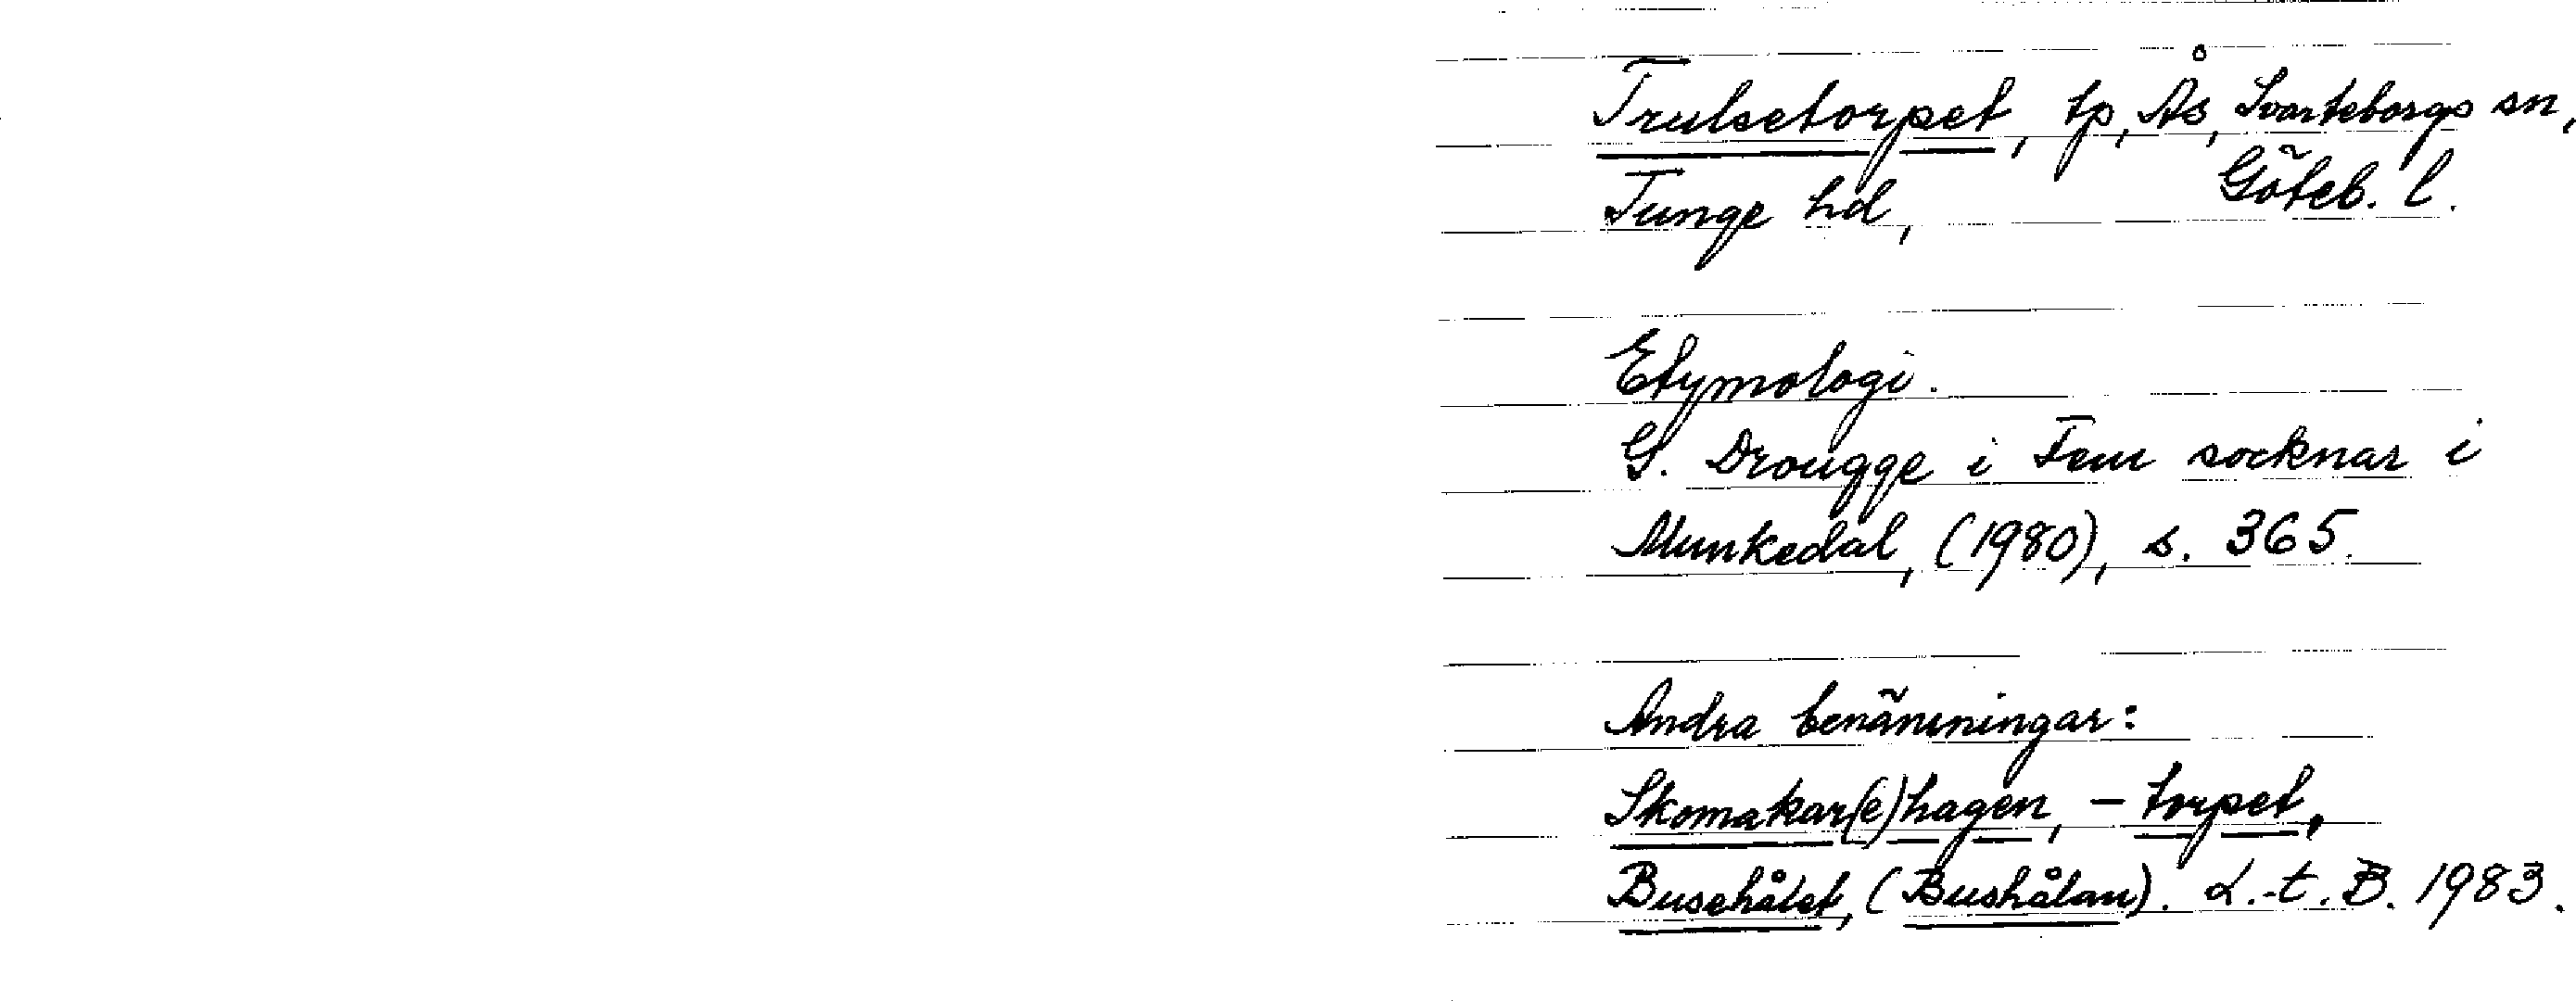 Trulsetorpet, tp, Ås, Svarteborgs sn,
Tunge hd, Göteb. l.
Etymologi.
G. Drougge i Fem socknar i
Munkedal, (1980), s. 365.
Andra benämningar:
Skomakar(e)hagen, - torpet,
Busehålet, (Bushålan). L.-t. B. 1983.